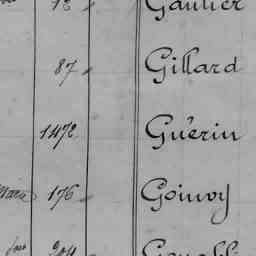 12 Gautier
87 Gillard
1472 Guérin
176 Goinvy
204